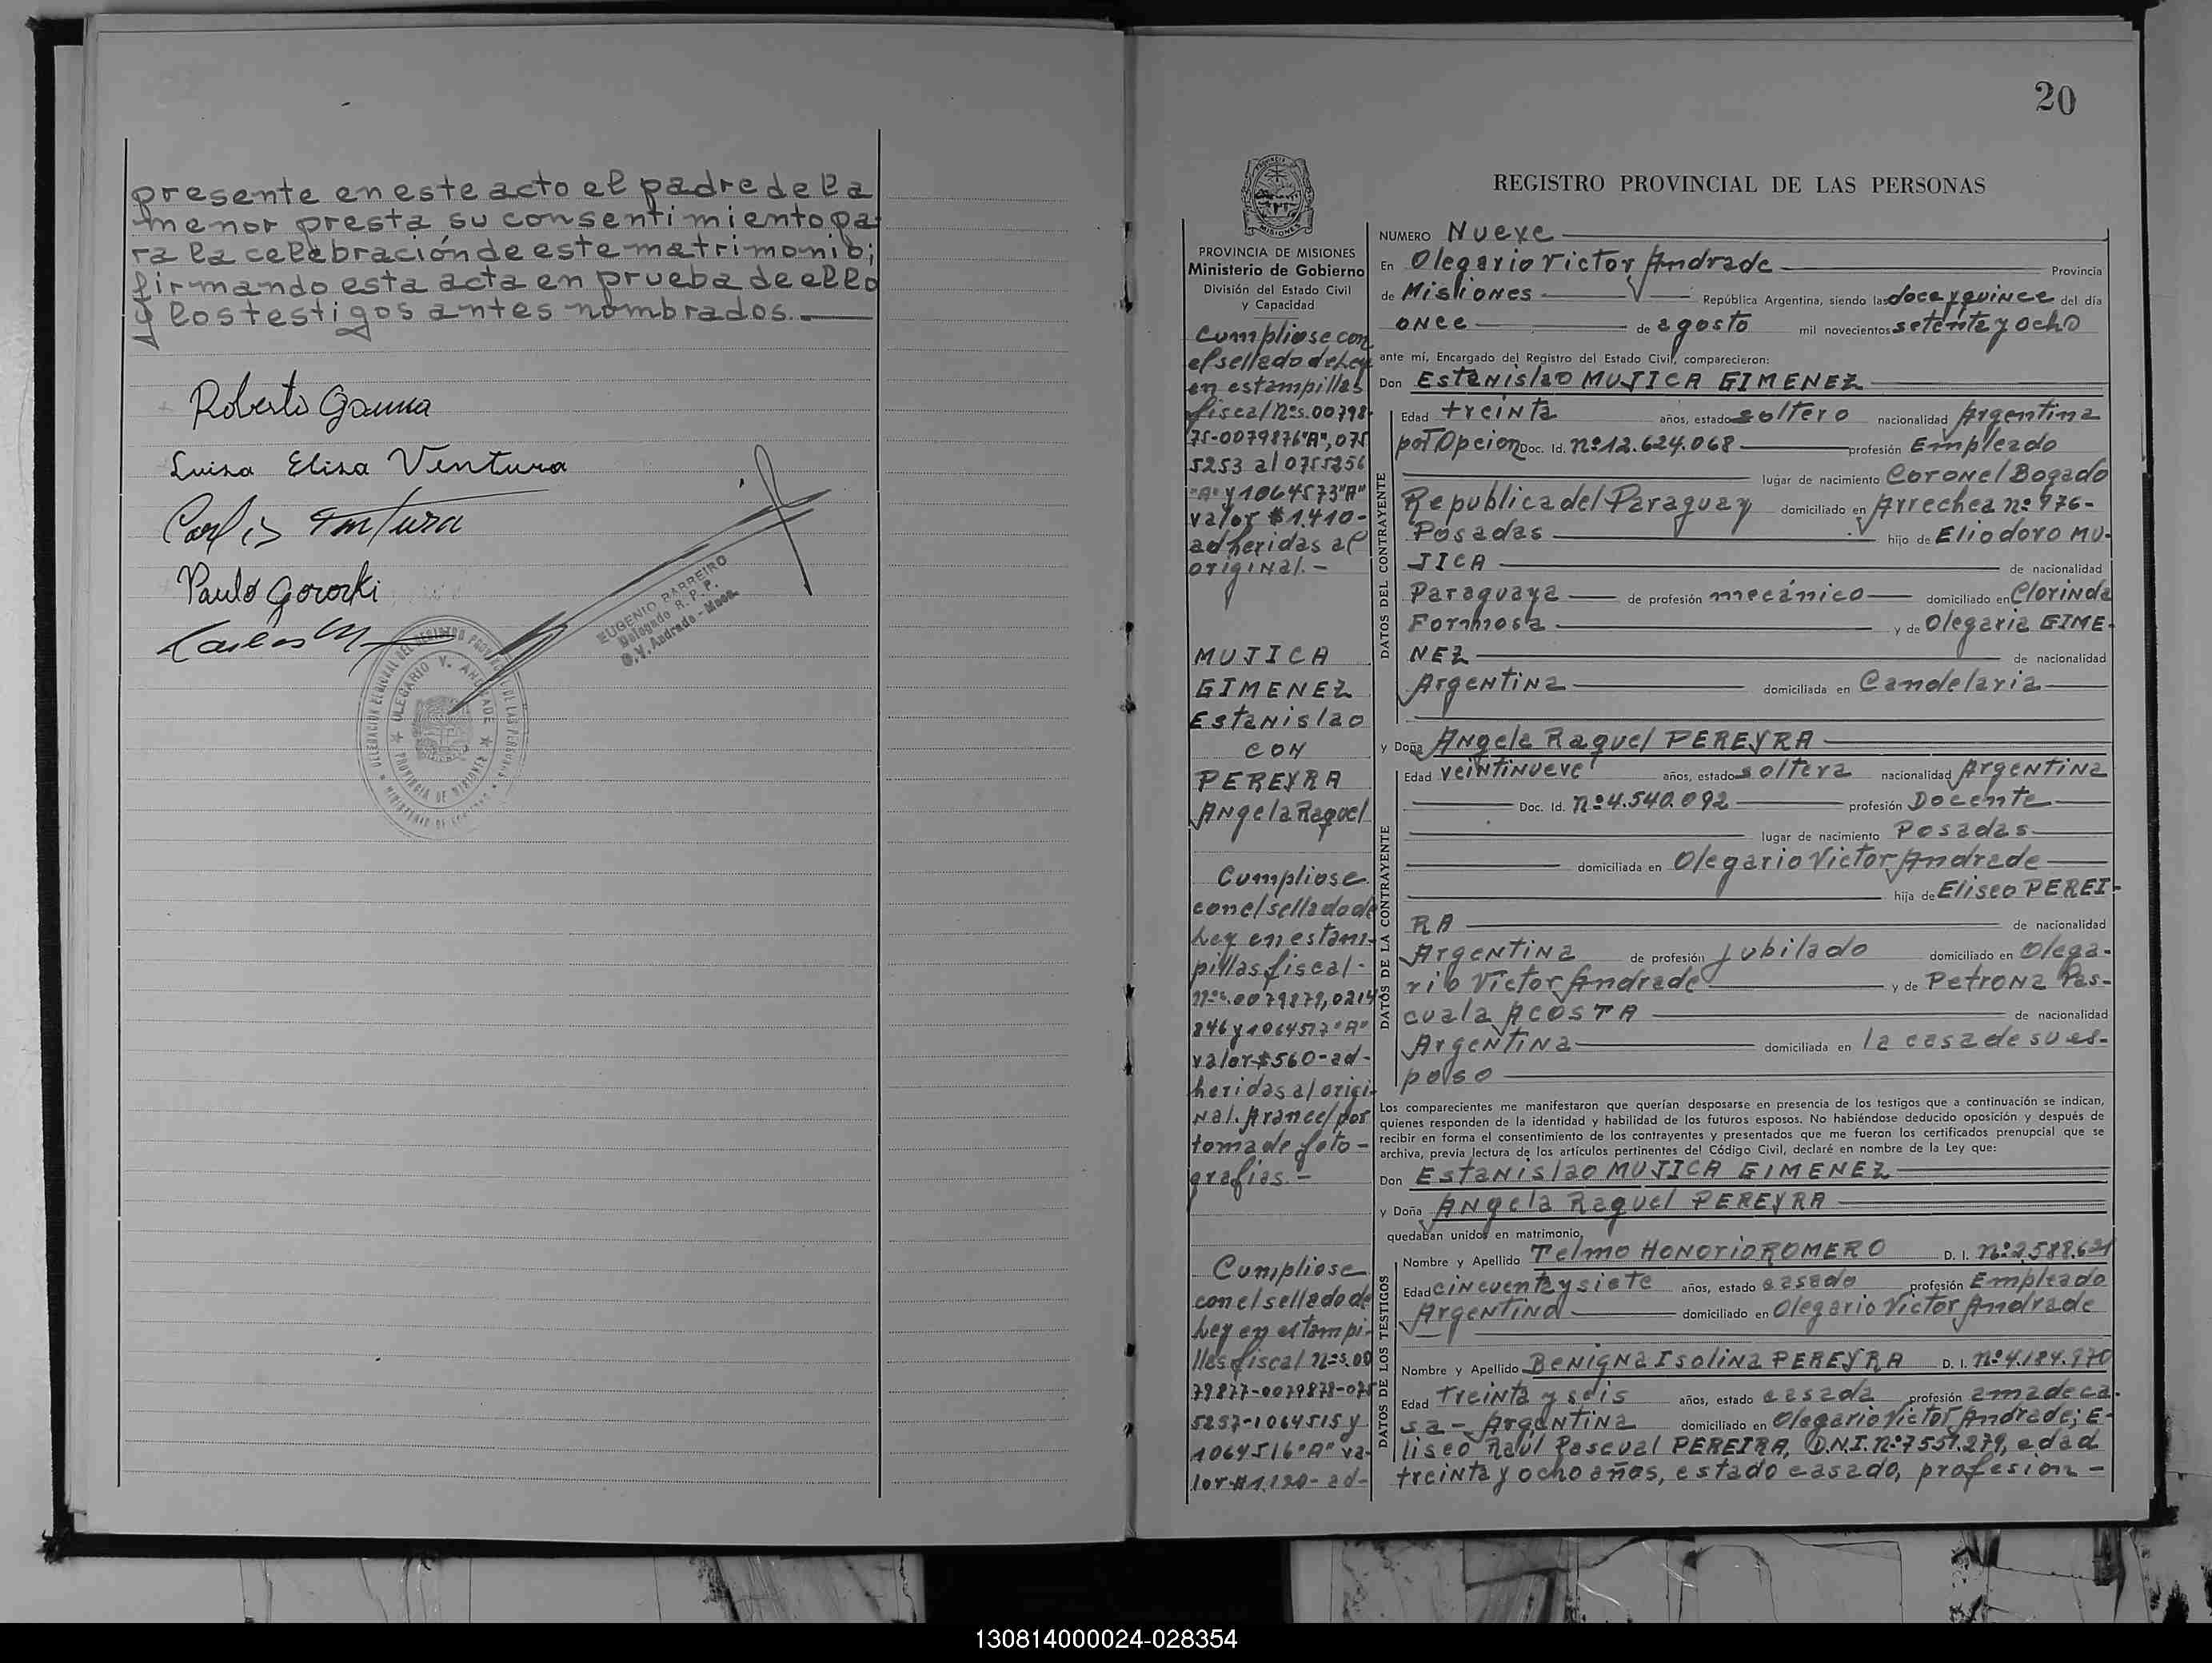 presente en este acto el padre de la
menor presta su consentimiento pa-
ra la celebración de este matrimonio;
firmando esta acta en prueba de ello
y los testigos antes nombrados.
Roberto Gauna
Luisa Elisa Ventura
Carlos Ventura
Paulo Gororki
Carlos M
EUGENIO BARREIRO
Delegado R. P. P.
O. V. Andrade - Mnes.
DELEGACION REGIONAL DEL REGISTRO PROVINCIAL DE LAS PERSONAS
OLEGARIO V. ANDRADE
PROVINCIA DE MISIONES
MINISTERIO DE GOBIERNO
20
PROVINCIA DE MISIONES
Ministerio de Gobierno
División del Estado Civil
y Capacidad
Cumpliose con
el sellado de Ley
en estampillas
fiscal Nºs. 00798-
75-0079876"A", 075
5253 al 0755256
"A" y 1064573"A"
valor $1.410-
adheridas al
original.-
MUJICA
GIMENEZ
Estanislao
CON
PEREYRA
Angela Raquel
Cumpliose
con el sellado de
Ley en estam-
pillas fiscal-
nºs. 0079879, 0214
846 y 1064517"A"
valor $560- ad-
heridas al origi-
nal. Arancel por
toma de foto-
grafias.-
Cumpliose
con el sellado de
Ley en estampi-
llas fiscal nºs. 00
79877-0079878-075
5257-1064515 y
1064516"A" va-
lor $1.120- ad-
REGISTRO PROVINCIAL DE LAS PERSONAS
NUMERO Nueve
En Olegario Victor Andrade Provincia
de Misiones República Argentina, siendo las doce y quince del día
once de agosto mil novecientos setenta y ocho
ante mí, Encargado del Registro del Estado Civil, comparecieron:
Don Estanislao MUJICA GIMENEZ
DATOS DEL CONTRAYENTE
Edad treinta años, estado soltero nacionalidad Argentina
por Opcion Doc. Id. nº 12.624.068 profesión Empleado
lugar de nacimiento Coronel Bogado
Republica del Paraguay domiciliado en Arrechea nº 976-
Posadas hijo de Eliodoro MU-
JICA de nacionalidad
Paraguaya de profesión mecánico domiciliado en Clorinda
Formosa y de Olegaria GIME-
NEZ de nacionalidad
Argentina domiciliada en Candelaria
y Doña Angela Raquel PEREYRA
DATOS DE LA CONTRAYENTE
Edad veintinueve años, estado soltera nacionalidad Argentina
Doc. Id. nº 4.540.092 profesión Docente
lugar de nacimiento Posadas
domiciliada en Olegario Victor Andrade
hija de Eliseo PEREI-
RA de nacionalidad
Argentina de profesión jubilado domiciliado en Olega-
rio Victor Andrade y de Petrona Pas-
cuala ACOSTA de nacionalidad
Argentina domiciliada en la casa de su es-
poso
Los comparecientes me manifestaron que querían desposarse en presencia de los testigos que a continuación se indican,
quienes responden de la identidad y habilidad de los futuros esposos. No habiéndose deducido oposición y después de
recibir en forma el consentimiento de los contrayentes y presentados que me fueron los certificados prenupcial que se
archiva, previa lectura de los artículos pertinentes del Código Civil, declaré en nombre de la Ley que:
Don Estanislao MUJICA GIMENEZ
y Doña Angela Raquel PEREYRA
quedaban unidos en matrimonio.
DATOS DE LOS TESTIGOS
Nombre y Apellido Telmo Honorio ROMERO D. I. nº 2.588.621
Edad cincuenta y siete años, estado casado profesión Empleado
Argentino domiciliado en Olegario Victor Andrade
Nombre y Apellido Benigna Isolina PEREYRA D. I. nº 4.184.970
Edad treinta y seis años, estado casada profesión ama de ca-
sa - Argentina domiciliado en Olegario Victor Andrade; E-
liseo Raul Pascual PEREIRA, D.N.I. nº 7.551.279, edad
treinta y ocho años, estado casado, profesion -
130814000024-028354